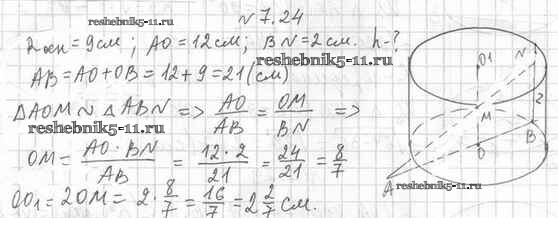 № 7.24
reshebnik5-11.ru
Rосн = 9см; AO = 12см; BN = 2см. h-?
reshebnik5-11.ru
AB = AO + OB = 12 + 9 = 21 (см)
△AOM ~ △ABN => AO/AB = OM/BN =>
reshebnik5-11.ru
OM = AO · BN/AB = 12·2/21 = 24/21 = 8/7
OO₁ = 2OM = 2 · 8/7 = 16/7 = 2 2/7 см.
O1
N
M
2
B
O
A
reshebnik5-11.ru